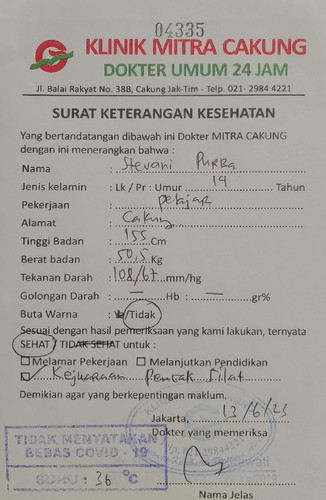 04335
KLINIK MITRA CAKUNG
DOKTER UMUM 24 JAM
Jl. Balai Rakyat No. 38B, Cakung Jak-Tim - Telp. 021- 2984 4221
SURAT KETERANGAN KESEHATAN
Yang bertandatangan dibawah ini Dokter MITRA CAKUNG
dengan ini menerangkan bahwa :
Nama : Stevani
Jenis kelamin : Lk / Pr : Umur 14 Tahun
Pekerjaan : pelajar
Alamat : Cakung
Tinggi Badan : 155 Cm
Berat badan : 50,5 Kg
Tekanan Darah : 108/67 mm/hg
Golongan Darah : — Hb : — gr%
Buta Warna : Ya/Tidak
Sesuai dengan hasil pemeriksaan yang kami lakukan, ternyata
SEHAT / TIDAK SEHAT untuk :
Melamar Pekerjaan Melanjutkan Pendidikan
Kejuaraan Pencak Silat
Demikian agar yang berkepentingan maklum.
Jakarta, 13/6/23
Dokter yang memeriksa
TIDAK MENYATAKAN
BEBAS COVID - 19
SUHU : 36 °C
Nama Jelas